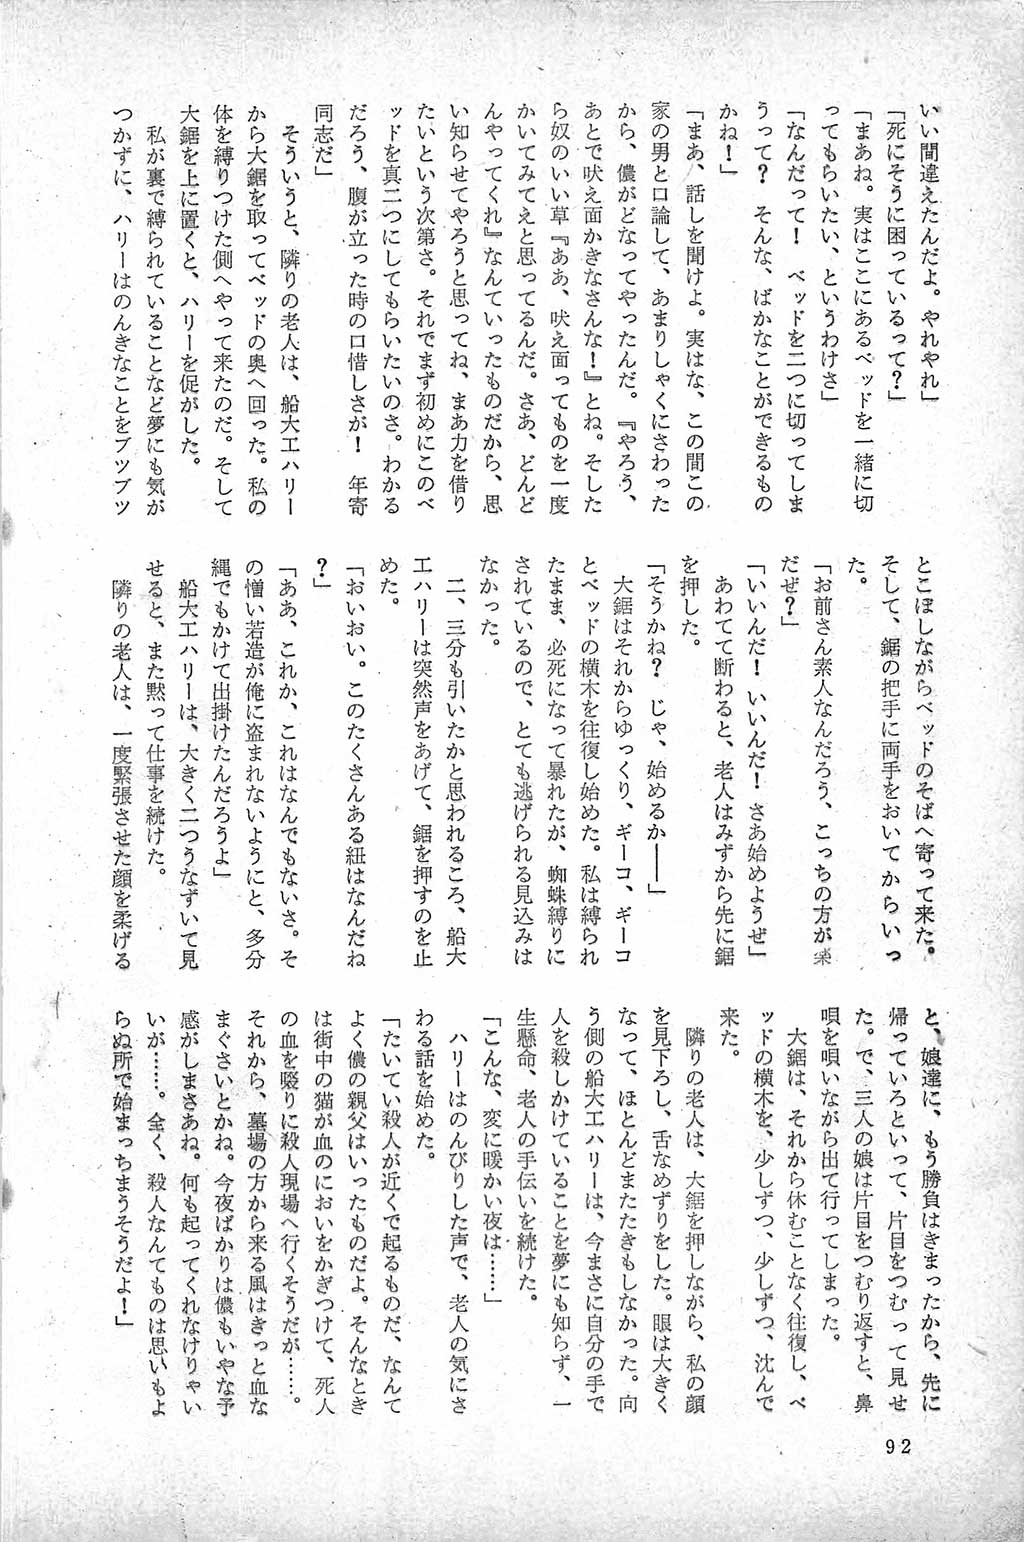 いい間違えたんだよ。やれやれ」
「死にそうに困っているって？」
「まあね。実はここにあるベッドを一緒に切
ってもらいたい、というわけさ」
「なんだって！　ベッドを二つに切ってしま
うって？　そんな、ばかなことができるもの
かね！」
「まあ、話しを聞けよ。実はな、この間この
家の男と口論して、あまりしゃくにさわった
から、儂がどなってやったんだ。『やろう、
あとで吠え面かきなさんな！』とね。そした
ら奴のいい草『ああ、吠え面ってものを一度
かいてみてえと思ってるんだ。さあ、どんど
んやってくれ』なんていったものだから、思
い知らせてやろうと思ってね、まあ力を借り
たいという次第さ。それでまず初めにこのベ
ッドを真二つにしてもらいたいのさ。わかる
だろう、腹が立った時の口惜しさが！　年寄
同志だ」
　そういうと、隣りの老人は、船大工ハリー
から大鋸を取ってベッドの奥へ回った。私の
体を縛りつけた側へやって来たのだ。そして
大鋸を上に置くと、ハリーを促がした。
　私が裏で縛られていることなど夢にも気が
つかずに、ハリーはのんきなことをブツブツ
とこぼしながらベッドのそばへ寄って来た。
そして、鋸の把手に両手をおいてからいっ
た。
「お前さん素人なんだろう、こっちの方が楽
だぜ？」
「いいんだ！　いいんだ！　さあ始めようぜ」
　あわてて断わると、老人はみずから先に鋸
を押した。
「そうかね？　じゃ、始めるか――」
　大鋸はそれからゆっくり、ギーコ、ギーコ
とベッドの横木を往復し始めた。私は縛られ
たまま、必死になって暴れたが、蜘蛛縛りに
されているので、とても逃げられる見込みは
なかった。
　二、三分も引いたかと思われるころ、船大
工ハリーは突然声をあげて、鋸を押すのを止
めた。
「おいおい。このたくさんある紐はなんだね
？」
「ああ、これか、これはなんでもないさ。そ
の憎い若造が俺に盗まれないようにと、多分
縄でもかけて出掛けたんだろうよ」
　船大工ハリーは、大きく二つうなずいて見
せると、また黙って仕事を続けた。
　隣りの老人は、一度緊張させた顔を柔げる
と、娘達に、もう勝負はきまったから、先に
帰っていろといって、片目をつむって見せ
た。で、三人の娘は片目をつむり返すと、鼻
唄を唄いながら出て行ってしまった。
　大鋸は、それから休むことなく往復し、ベ
ッドの横木を、少しずつ、少しずつ、沈んで
来た。
　隣りの老人は、大鋸を押しながら、私の顔
を見下ろし、舌なめずりをした。眼は大きく
なって、ほとんどまたたきもしなかった。向
う側の船大工ハリーは、今まさに自分の手で
人を殺しかけていることを夢にも知らず、一
生懸命、老人の手伝いを続けた。
「こんな、変に暖かい夜は……」
　ハリーはのんびりした声で、老人の気にさ
わる話を始めた。
「たいてい殺人が近くで起るものだ、なんて
よく儂の親父はいったものだよ。そんなとき
は街中の猫が血のにおいをかぎつけて、死人
の血を啜りに殺人現場へ行くそうだが……。
それから、墓場の方から来る風はきっと血な
まぐさいとかね。今夜ばかりは儂もいやな予
感がしまさあね。何も起ってくれなけりゃい
いが……。全く、殺人なんてものは思いもよ
らぬ所で始まっちまうそうだよ！」
92